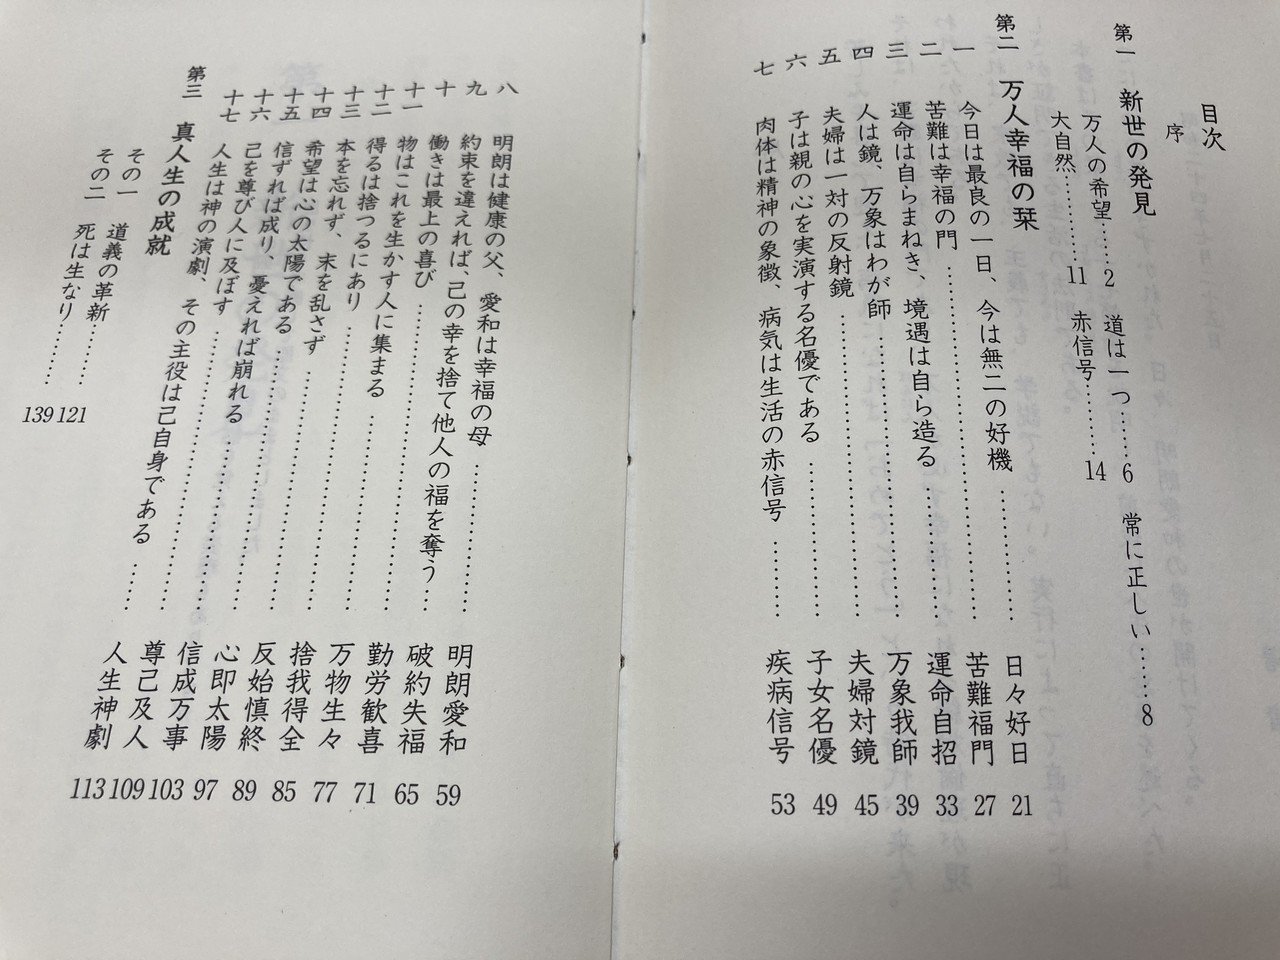 目次
序
第一　新世の発見
万人の希望……2　道は一つ……6　常に正しい……8
大自然…………11　赤信号…………14
第二　万人幸福の栞
一　今日は最良の一日、今は無二の好機…………日々好日 21
二　苦難は幸福の門…………苦難福門 27
三　運命は自らまねき、境遇は自ら造る…………運命自招 33
四　人は鏡、万象はわが師…………万象我師 39
五　夫婦は一対の反射鏡…………夫婦対鏡 45
六　子は親の心を実演する名優である…………子女名優 49
七　肉体は精神の象徴、病気は生活の赤信号…………疾病信号 53
八　明朗は健康の父、愛和は幸福の母…………明朗愛和 59
九　約束を違えれば、己の幸を捨て他人の福を奪う……破約失福 65
十　働きは最上の喜び…………勤労歓喜 71
十一　物はこれを生かす人に集まる…………万物生々 77
十二　得るは捨つるにあり…………捨我得全 85
十三　本を忘れず、末を乱さず…………反始慎終 89
十四　希望は心の太陽である…………心即太陽 97
十五　信ずれば成り、憂えれば崩れる…………信成万事 103
十六　己を尊び人に及ぼす…………尊己及人 109
十七　人生は神の演劇、その主役は己自身である……人生神劇 113
第三　真人生の成就
その一　道義の革新…………121
その二　死は生なり…………139